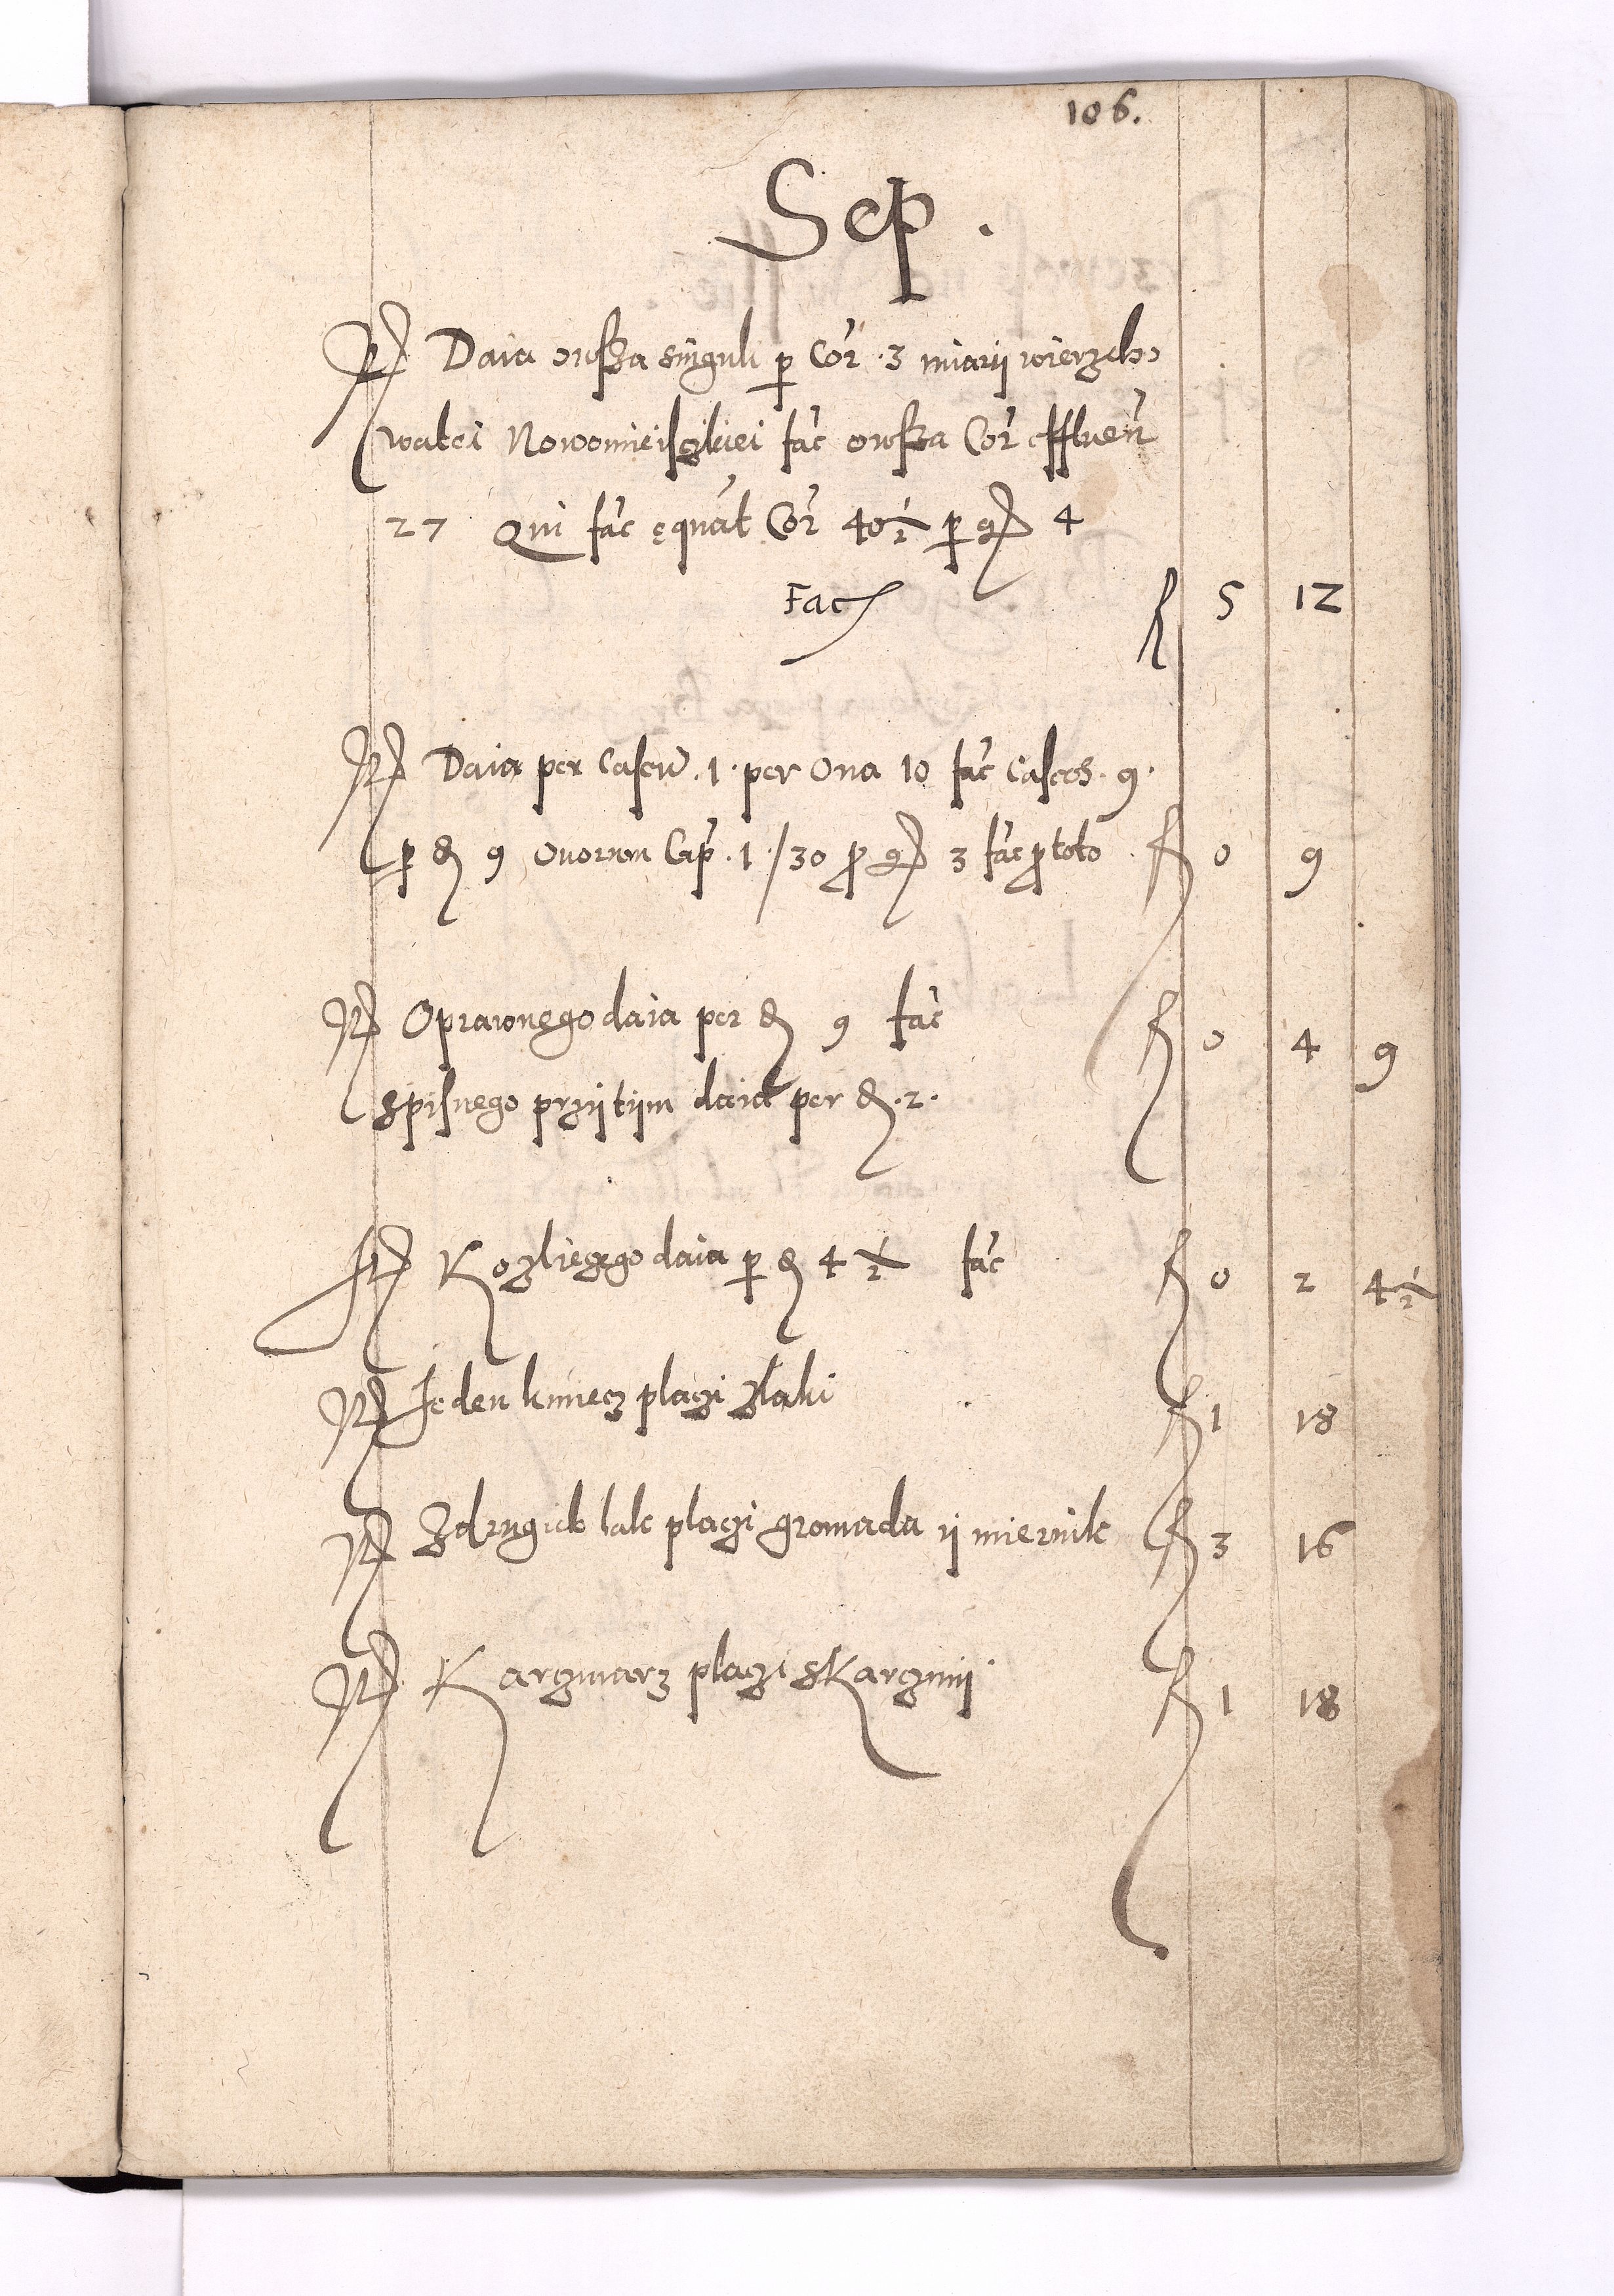 106.
Sep.
Daia owsza singuli p Cor. 3 miarii wierzcho
watei Nowomieisczkiei fac owsza Cor effluen
27 Qui fac ęquat Cor 40½ p gr 4
Fac f 5 12
Daia per Caseu. 1. per Oua 10 fac Caseos. 9.
p d 9 ouorum Cap. 1 / 30 p gr 3 fac p toto f 0 9
Oprawnego daia per d 9 fac f 0 4 9
Spisnego przÿtÿm daia per d. 2.
Kozliego daia p d 4½ fac f 0 2 4½
Jeden kmiecz placzi zlaki f 1 18
Zdrugich lak placzi gromada ÿ miernik f 3 16
Karczmarz placzi sKarczmÿ f 1 18